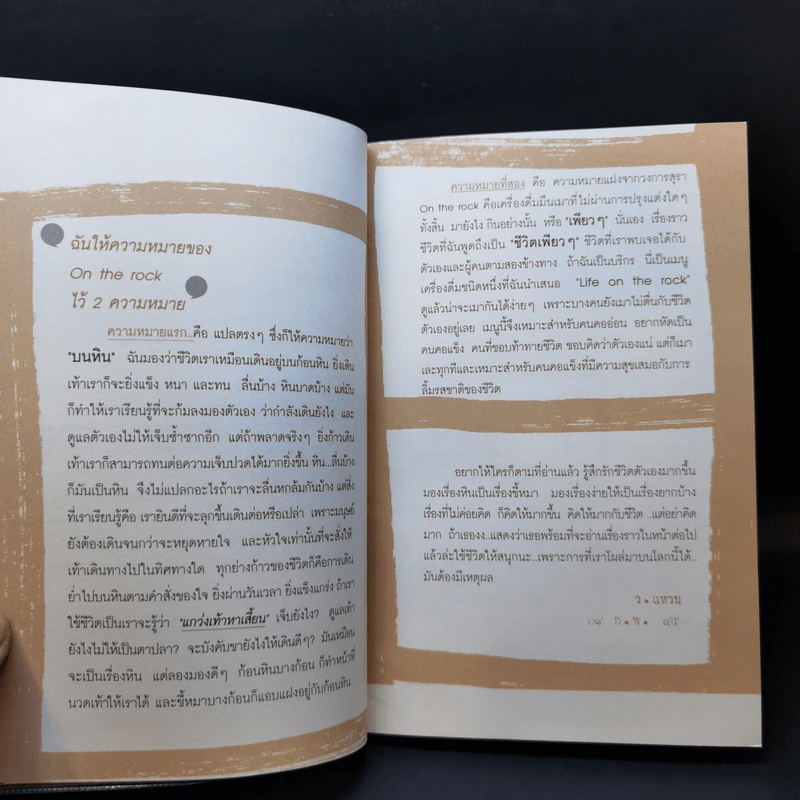 ฉันให้ความหมายของ
On the rock
ไว้ 2 ความหมาย
ความหมายแรก..คือ แปลตรงๆ ซึ่งก็ให้ความหมายว่า
"บนหิน" ฉันมองว่าชีวิตเราเหมือนเดินอยู่บนก้อนหิน ยิ่งเดิน
เท้าเราก็จะยิ่งแข็ง หนา และทน ลื่นบ้าง หินบาดบ้าง แต่มัน
ก็ทำให้เราเรียนรู้ที่จะก้มลงมองตัวเอง ว่ากำลังเดินยังไง และ
ดูแลตัวเองไม่ให้เจ็บซ้ำซากอีก แต่ถ้าพลาดจริงๆ ยิ่งก้าวเดิน
เท้าเราก็สามารถทนต่อความเจ็บปวดได้มากยิ่งขึ้น หิน...ลื่นบ้าง
ก็มันเป็นหิน จึงไม่แปลกอะไรถ้าเราจะลื่นหกล้มกันบ้าง แต่สิ่ง
ที่เราเรียนรู้คือ เรายินดีที่จะลุกขึ้นเดินต่อหรือเปล่า เพราะมนุษย์
ยังต้องเดินจนกว่าจะหยุดหายใจ และหัวใจเท่านั้นที่จะสั่งให้
เท้าเดินทางไปในทิศทางใด ทุกย่างก้าวของชีวิตก็คือการเดิน
ย่ำไปบนหินตามคำสั่งของใจ ยิ่งผ่านวันเวลา ยิ่งแข็งแกร่ง ถ้าเรา
ใช้ชีวิตเป็นเราจะรู้ว่า "แกว่งเท้าหาเสี้ยน" เจ็บยังไง? ดูแลเท้า
ยังไงไม่ให้เป็นตาปลา? จะบังคับขายังไงให้เดินดีๆ? มันเหมือน
จะเป็นเรื่องหิน แต่ลองมองดีๆ ก้อนหินบางก้อน ก็ทำหน้าที่
นวดเท้าให้เราได้ และขี้หมาบางก้อนก็แอบแฝงอยู่กับก้อนหิน
ความหมายที่สอง คือ ความหมายแฝงจากวงการสุรา
On the rock คือเครื่องดื่มมึนเมาที่ไม่ผ่านการปรุงแต่งใดๆ
ทั้งสิ้น มายังไง กินอย่างนั้น หรือ "เพียวๆ" นั่นเอง เรื่องราว
ชีวิตที่ฉันพูดถึงเป็น "ชีวิตเพียวๆ" ชีวิตที่เราพบเจอได้กับ
ตัวเองและผู้คนตามสองข้างทาง ถ้าฉันเป็นบริกร นี่เป็นเมนู
เครื่องดื่มชนิดหนึ่งที่ฉันนำเสนอ "Life on the rock"
ดูแล้วน่าจะเมากันได้ง่ายๆ เพราะบางคนยังเมาไม่ตื่นกับชีวิต
ตัวเองอยู่เลย เมนูนี้จึงเหมาะสำหรับคนคออ่อน อยากหัดเป็น
คนคอแข็ง คนที่ชอบท้าทายชีวิต ชอบคิดว่าตัวเองแน่ แต่ก็เมา
เละทุกทีและเหมาะสำหรับคนคอแข็งที่มีความสุขเสมอกับการ
ลิ้มรสชาติของชีวิต
อยากให้ใครก็ตามที่อ่านแล้ว รู้สึกรักชีวิตตัวเองมากขึ้น
มองเรื่องหินเป็นเรื่องขี้หมา มองเรื่องง่ายให้เป็นเรื่องยากบ้าง
เรื่องที่ไม่ค่อยคิด ก็คิดให้มากขึ้น คิดให้มากกับชีวิต ..แต่อย่าคิด
มาก ถ้าเธองง..แสดงว่าเธอพร้อมที่จะอ่านเรื่องราวในหน้าต่อไป
แล้วล่ะใช้ชีวิตให้สนุกนะ..เพราะการที่เราโผล่มาบนโลกนี้ได้..
มันต้องมีเหตุผล
ว.แหวน
๐๙ ก.พ. ๔๕